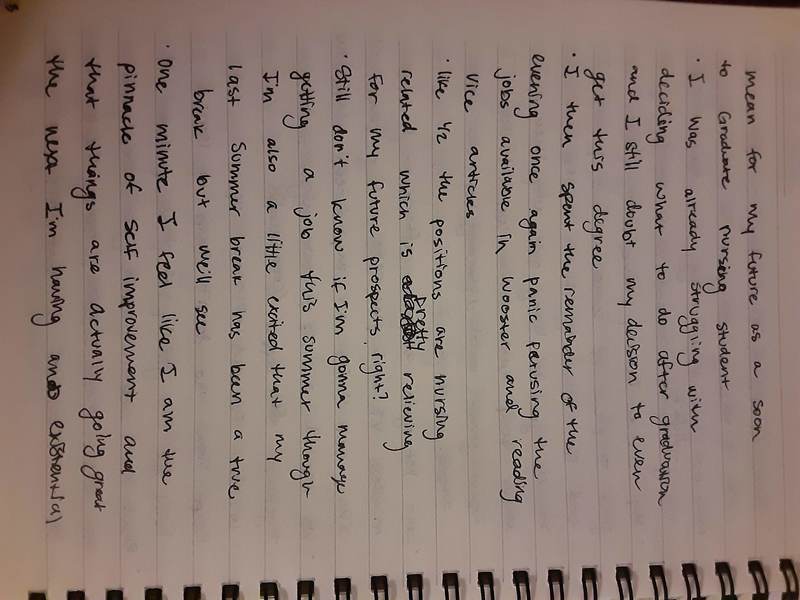 mean for my future as a soon
to Graduate nursing student
· I was already struggling with
deciding what to do after graduation
and I still doubt my decision to even
get this degree
· I then spent the remainder of the
evening once again panic perusing the
jobs available in Wooster and reading
Vice articles
· like 1/2 the positions are nursing
related which is pretty relieving
for my future prospects, right?
· Still don't know if I'm gonna manage
getting a job this summer though
I'm also a little excited that my
last Summer break has been a true
break but we'll see
· One minute I feel like I am the
pinnacle of self improvement and
that things are actually going great
the next I'm having an existential